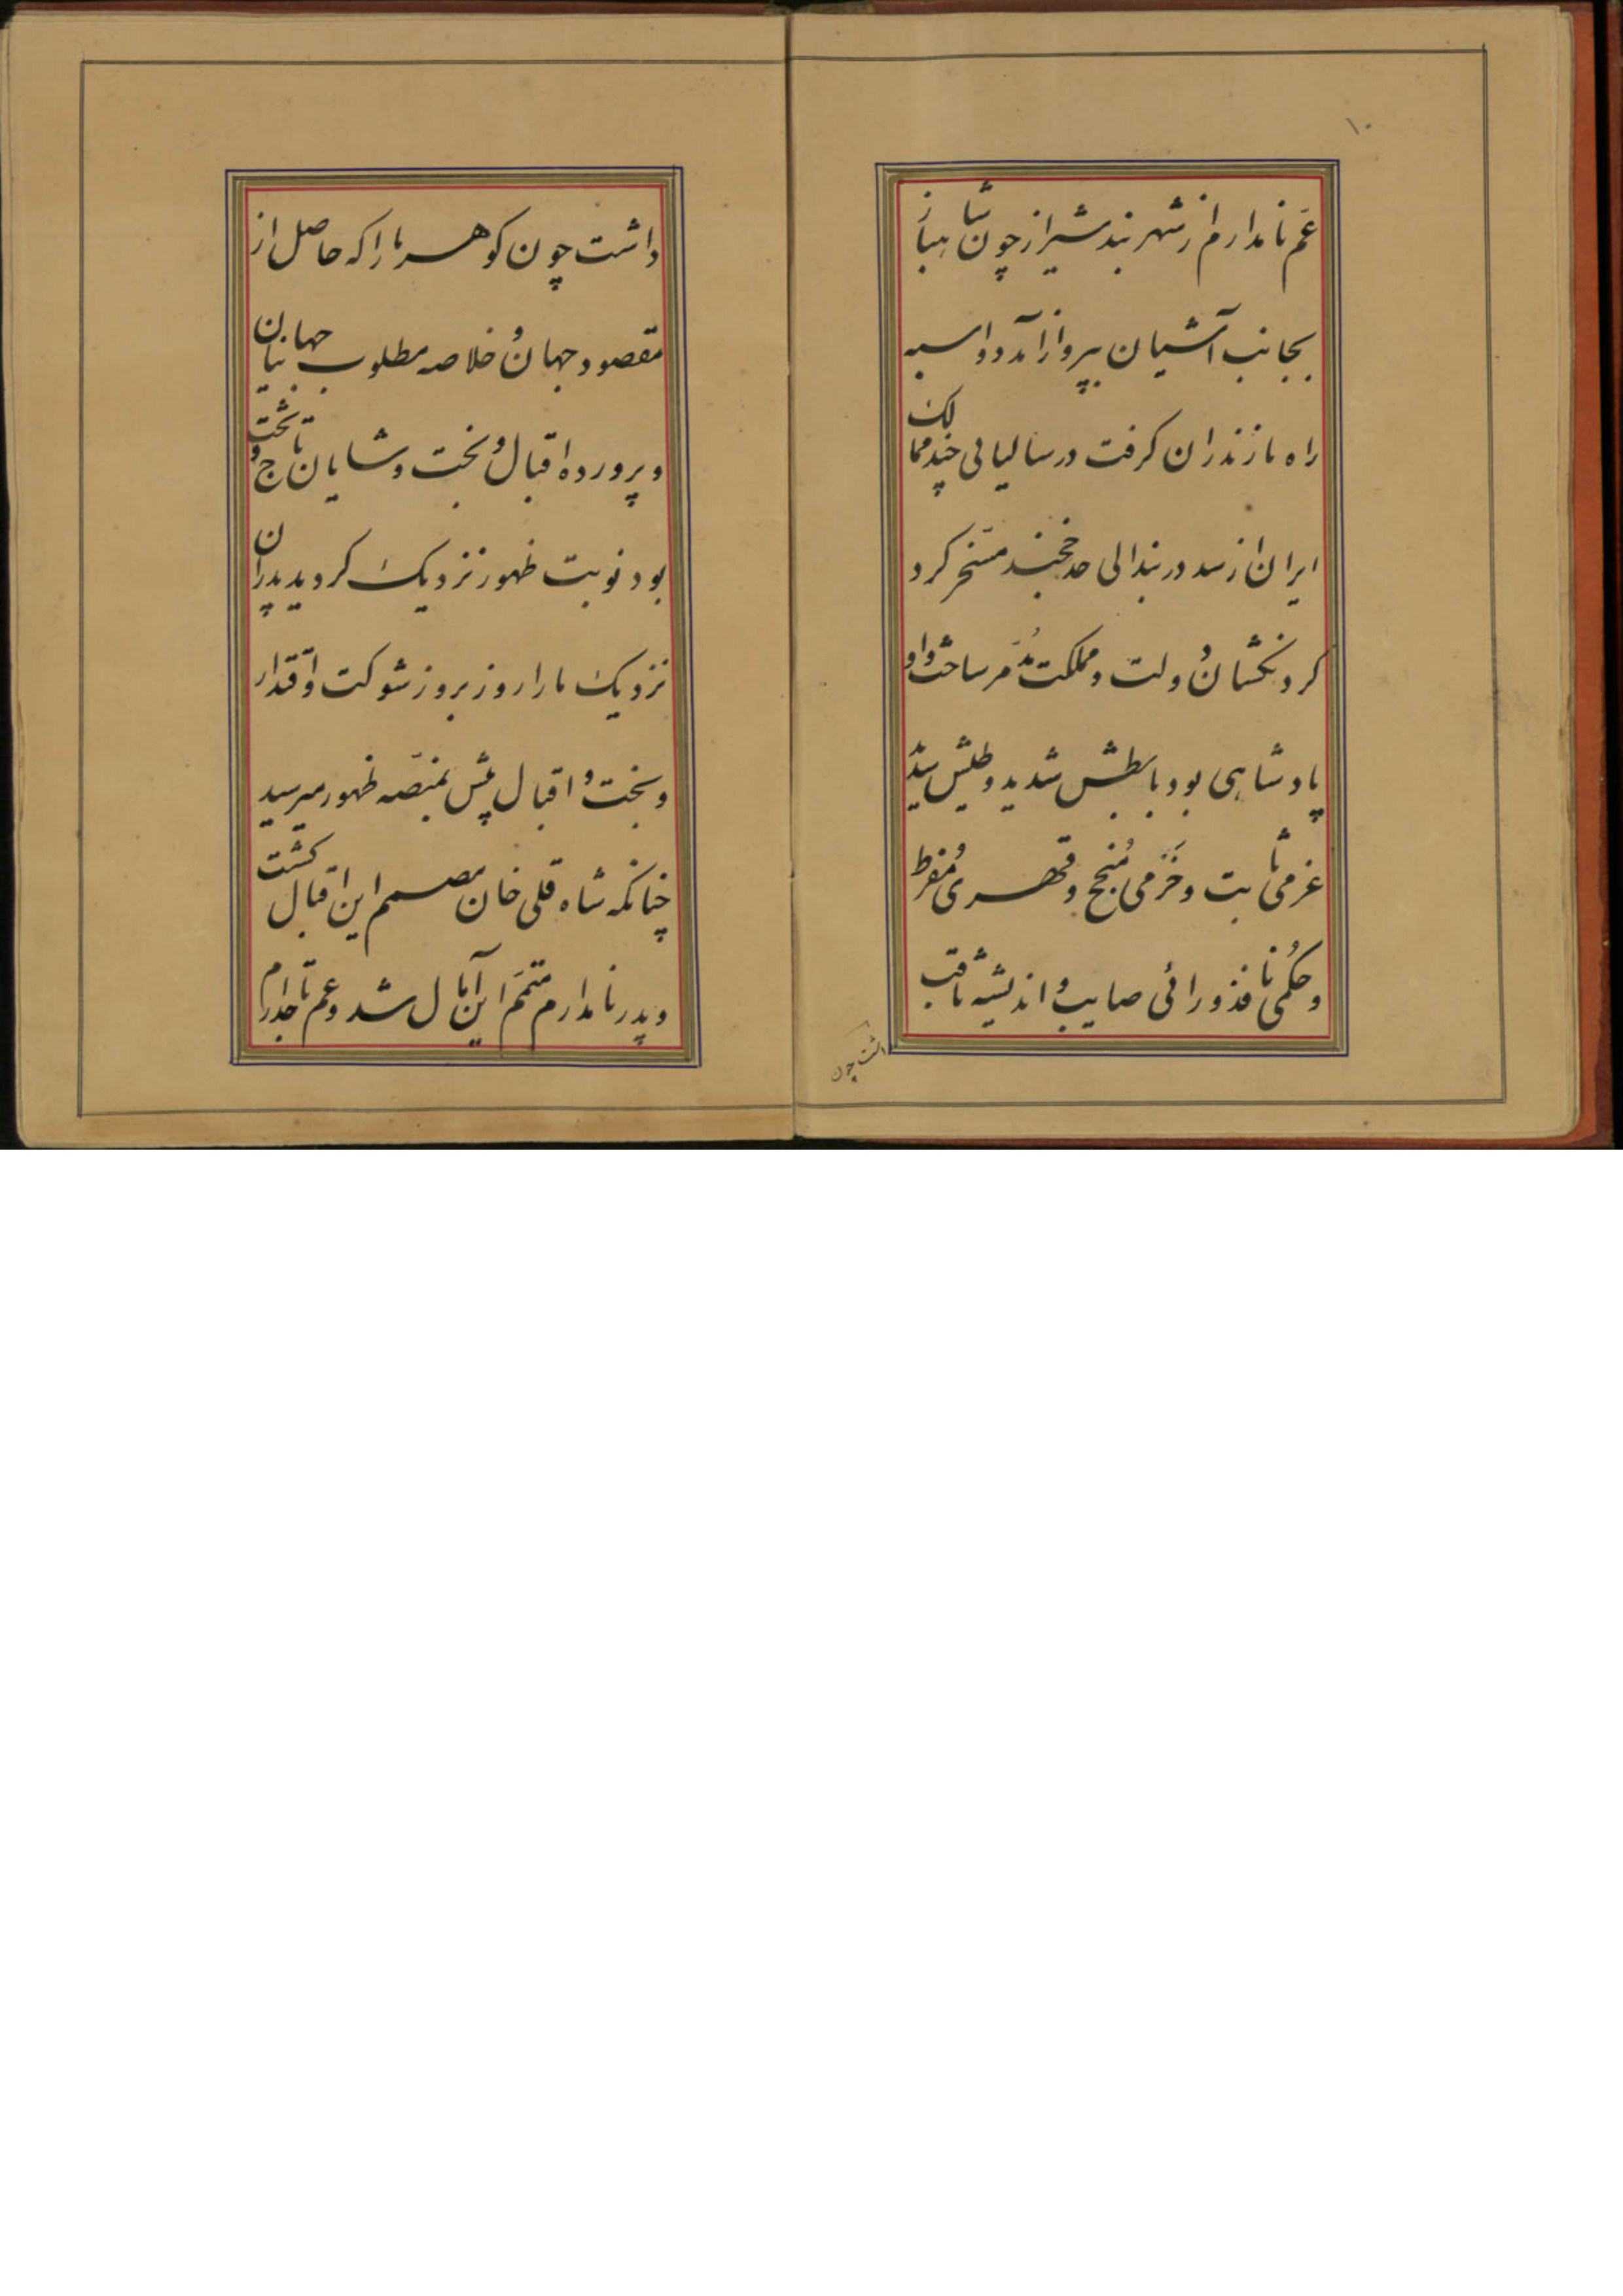 ۱۰
عم نامدارم از شهر بند شیراز چون شاهباز
بجانب آشیان بپرواز آمد دو اسبه
راه مازندران کرفت در سالیانی چند ممالک
ایران از سد دربند الی حد خجند مسخر کرد
کردنکشان دولت و مملکت مدمر ساخت و او
پادشاهی بود با بطش شدید و طیش
عزمی ثابت و حزمی منجح و قهری مفرط
و حکمی نافذ و رائی صایب و اندیشه ثاقب
داشت چون
داشت چون کوهر ما را که حاصل از
مقصود جهان و خلاصه مطلوب جهانیان
و پرورده اقبال و بخت و شایان تاج و تخت
بود نوبت ظهور نزدیک کردید پدران
نزدیک ما را روز بروز شوکت و اقتدار
و بخت و اقبال بیش بمنصه ظهور میرسید
چنانکه شاه قلی خان مصمم این اقبال کشت
و پدر نامدارم متمم این آمال شد و عم تاجدارم